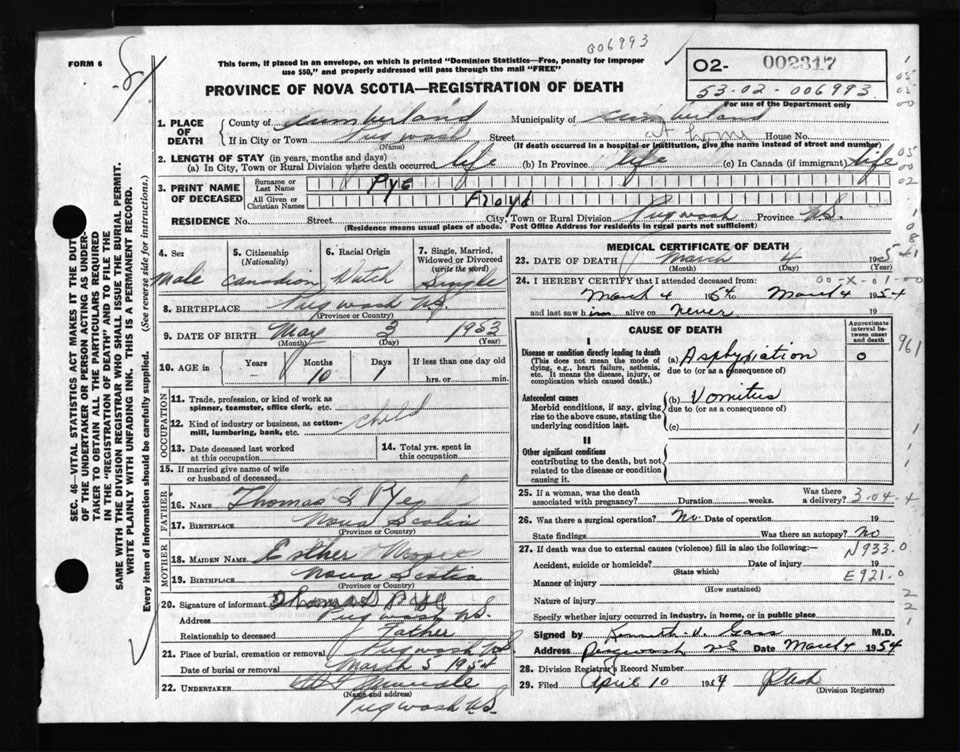 006993
FORM 6
This form, if placed in an envelope, on which is printed "Dominion Statistics—Free, penalty for improper
use $50," and properly addressed will pass through the mail "FREE"
02- 002317
53-02-006993
For use of the Department only
PROVINCE OF NOVA SCOTIA—REGISTRATION OF DEATH
1. PLACE OF DEATH County of Cumberland Municipality of Cumberland
If in City or Town Pugwash Street at home House No.
(Name) (If death occurred in a hospital or institution, give the name instead of street and number)
2. LENGTH OF STAY (in years, months and days)
(a) In City, Town or Rural Division where death occurred life (b) In Province life (c) In Canada (if immigrant) life
3. PRINT NAME OF DECEASED Surname or Last Name Pye
All Given or Christian Names Floyd
RESIDENCE No. Street City, Town or Rural Division Pugwash Province N.S.
(Residence means usual place of abode. Post Office Address for residents in rural parts not sufficient)
4. Sex Male
5. Citizenship (Nationality) Canadian
6. Racial Origin Dutch
7. Single, Married, Widowed or Divorced (write the word) Single
8. BIRTHPLACE Pugwash NS
(Province or Country)
9. DATE OF BIRTH May 3 1953
(Month) (Day) (Year)
10. AGE in Years Months 10 Days 1 If less than one day old
hrs. or min.
OCCUPATION
11. Trade, profession, or kind of work as
spinner, teamster, office clerk, etc.
12. Kind of industry or business, as cotton-
mill, lumbering, bank, etc. child
13. Date deceased last worked
at this occupation
14. Total yrs. spent in
this occupation
15. If married give name of wife
or husband of deceased
FATHER
16. NAME Thomas Pye
17. BIRTHPLACE Nova Scotia
(Province or Country)
MOTHER
18. MAIDEN NAME Esther
19. BIRTHPLACE Nova Scotia
(Province or Country)
20. Signature of informant Thomas Pye
Address Pugwash N.S.
Relationship to deceased Father
21. Place of burial, cremation or removal Pugwash NS
Date of burial or removal March 5 1954
22. UNDERTAKER
(Name and address)
Pugwash N.S.
MEDICAL CERTIFICATE OF DEATH
23. DATE OF DEATH March 4 195
(Month) (Day) (Year)
24. I HEREBY CERTIFY that I attended deceased from: 00-X-01-00
March 4 1954 to March 4 1954
and last saw him alive on never 19
CAUSE OF DEATH
Approximate interval between onset and death
I
Disease or condition directly leading to death
(This does not mean the mode of
dying, e.g., heart failure, asthenia,
etc. It means the disease, injury, or
complication which caused death.)
(a) Asphyxiation 0
due to (or as a consequence of)
Antecedent causes
Morbid conditions, if any, giving
rise to the above cause, stating the
underlying condition last.
(b) Vomitus
due to (or as a consequence of)
(c)
II
Other significant conditions
contributing to the death, but not
related to the disease or condition
causing it.
25. If a woman, was the death
associated with pregnancy? Duration weeks. Was there
a delivery? 3-04-4
26. Was there a surgical operation? No. Date of operation 19
State findings Was there an autopsy? No
27. If death was due to external causes (violence) fill in also the following:— N933.0
Accident, suicide or homicide? Date of injury 19
(State which) E921.0
Manner of injury
(How sustained)
Nature of injury
Specify whether injury occurred in industry, in home, or in public place
Signed by Kenneth V. Gass M.D.
Address Pugwash NS Date March 4 1954
28. Division Registrar's Record Number
29. Filed April 10 1954
(Division Registrar)
SEC. 46—VITAL STATISTICS ACT MAKES IT THE DUTY
OF THE UNDERTAKER OR PERSON ACTING AS UNDER-
TAKER TO OBTAIN ALL THE PARTICULARS REQUIRED
IN THE "REGISTRATION OF DEATH" AND TO FILE THE
SAME WITH THE DIVISION REGISTRAR WHO SHALL ISSUE THE BURIAL PERMIT.
WRITE PLAINLY WITH UNFADING INK. THIS IS A PERMANENT RECORD.
Every item of information should be carefully supplied. (See reverse side for instructions.)
961